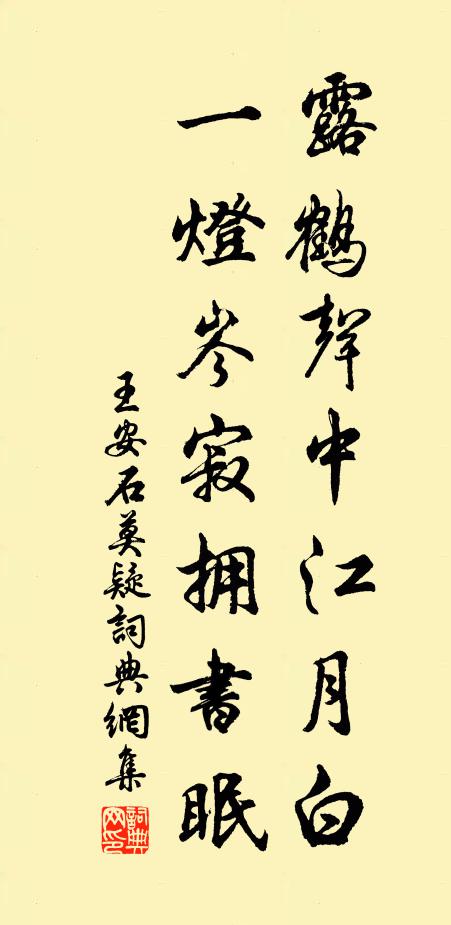 露鶴聲中江月白
一燈岑寂拥書眠
王安石莫疑詞典網集
詞典网印